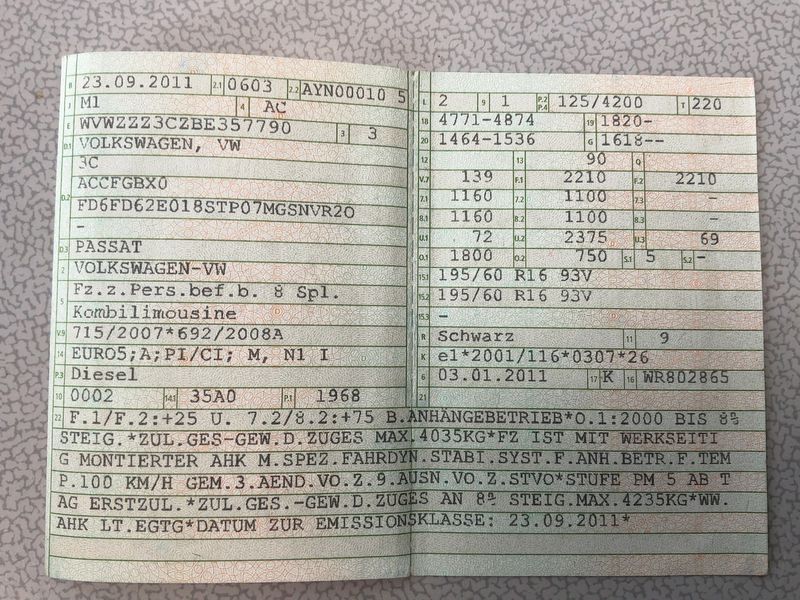 B 23.09.2011 2.1 0603 2.2 AYN00010 5
J M1 4 AC
E WVWZZZ3CZBE357790 3 3
D.1 VOLKSWAGEN, VW
3C
D.2 ACCFGBX0
FD6FD62E018STP07MGSNVR2O
-
D.3 PASSAT
2 VOLKSWAGEN-VW
5 Fz.z.Pers.bef.b. 8 Spl.
Kombilimousine
V.9 715/2007*692/2008A
14 EURO5;A;PI/CI; M, N1 I
P.3 Diesel
10 0002 14.1 35A0 P.1 1968
L 2 9 1 P.2 P.4 125/4200 T 220
18 4771-4874 19 1820-
20 1464-1536 G 1618--
12 13 90 Q
V.7 139 F.1 2210 F.2 2210
7.1 1160 7.2 1100 7.3 -
8.1 1160 8.2 1100 8.3 -
U.1 72 U.2 2375 U.3 69
O.1 1800 O.2 750 S.1 5 S.2 -
15.1 195/60 R16 93V
15.2 195/60 R16 93V
15.3 -
R Schwarz 11 9
K e1*2001/116*0307*26
6 03.01.2011 17 K 16 WR802865
21
22 F.1/F.2:+25 U. 7.2/8.2:+75 B.ANHÄNGEBETRIEB*O.1:2000 BIS 8%
STEIG.*ZUL.GES-GEW.D.ZUGES MAX.4035KG*FZ IST MIT WERKSEITI
G MONTIERTER AHK M.SPEZ.FAHRDYN.STABI.SYST.F.ANH.BETR.F.TEM
P.100 KM/H GEM.3.AEND.VO.Z.9.AUSN.VO.Z.STVO*STUFE PM 5 AB T
AG ERSTZUL.*ZUL.GES.-GEW.D.ZUGES AN 8% STEIG.MAX.4235KG*WW.
AHK LT.EGTG*DATUM ZUR EMISSIONSKLASSE: 23.09.2011*